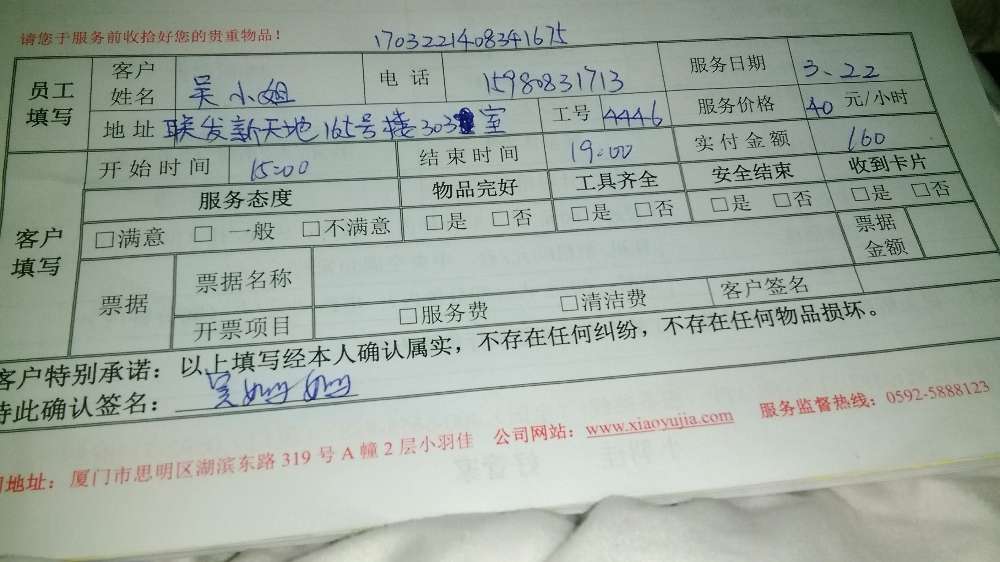 请您于服务前收拾好您的贵重物品！ 1703221408341675
员工填写 客户姓名 吴小姐 电话 15980831713 服务日期 3.22
地址 联发新天地165号楼303室 工号 4446 服务价格 40 元/小时
客户填写 开始时间 15:00 结束时间 19:00 实付金额 160
服务态度 物品完好 工具齐全 安全结束 收到卡片
□满意 □一般 □不满意 □是 □否 □是 □否 □是 □否 □是 □否
票据 票据名称 票据金额
开票项目 □服务费 □清洁费 客户签名
客户特别承诺：以上填写经本人确认属实，不存在任何纠纷，不存在任何物品损坏。
特此确认签名：吴
地址：厦门市思明区湖滨东路319号A幢2层小羽佳 公司网站：www.xiaoyujia.com 服务监督热线：0592-5888123